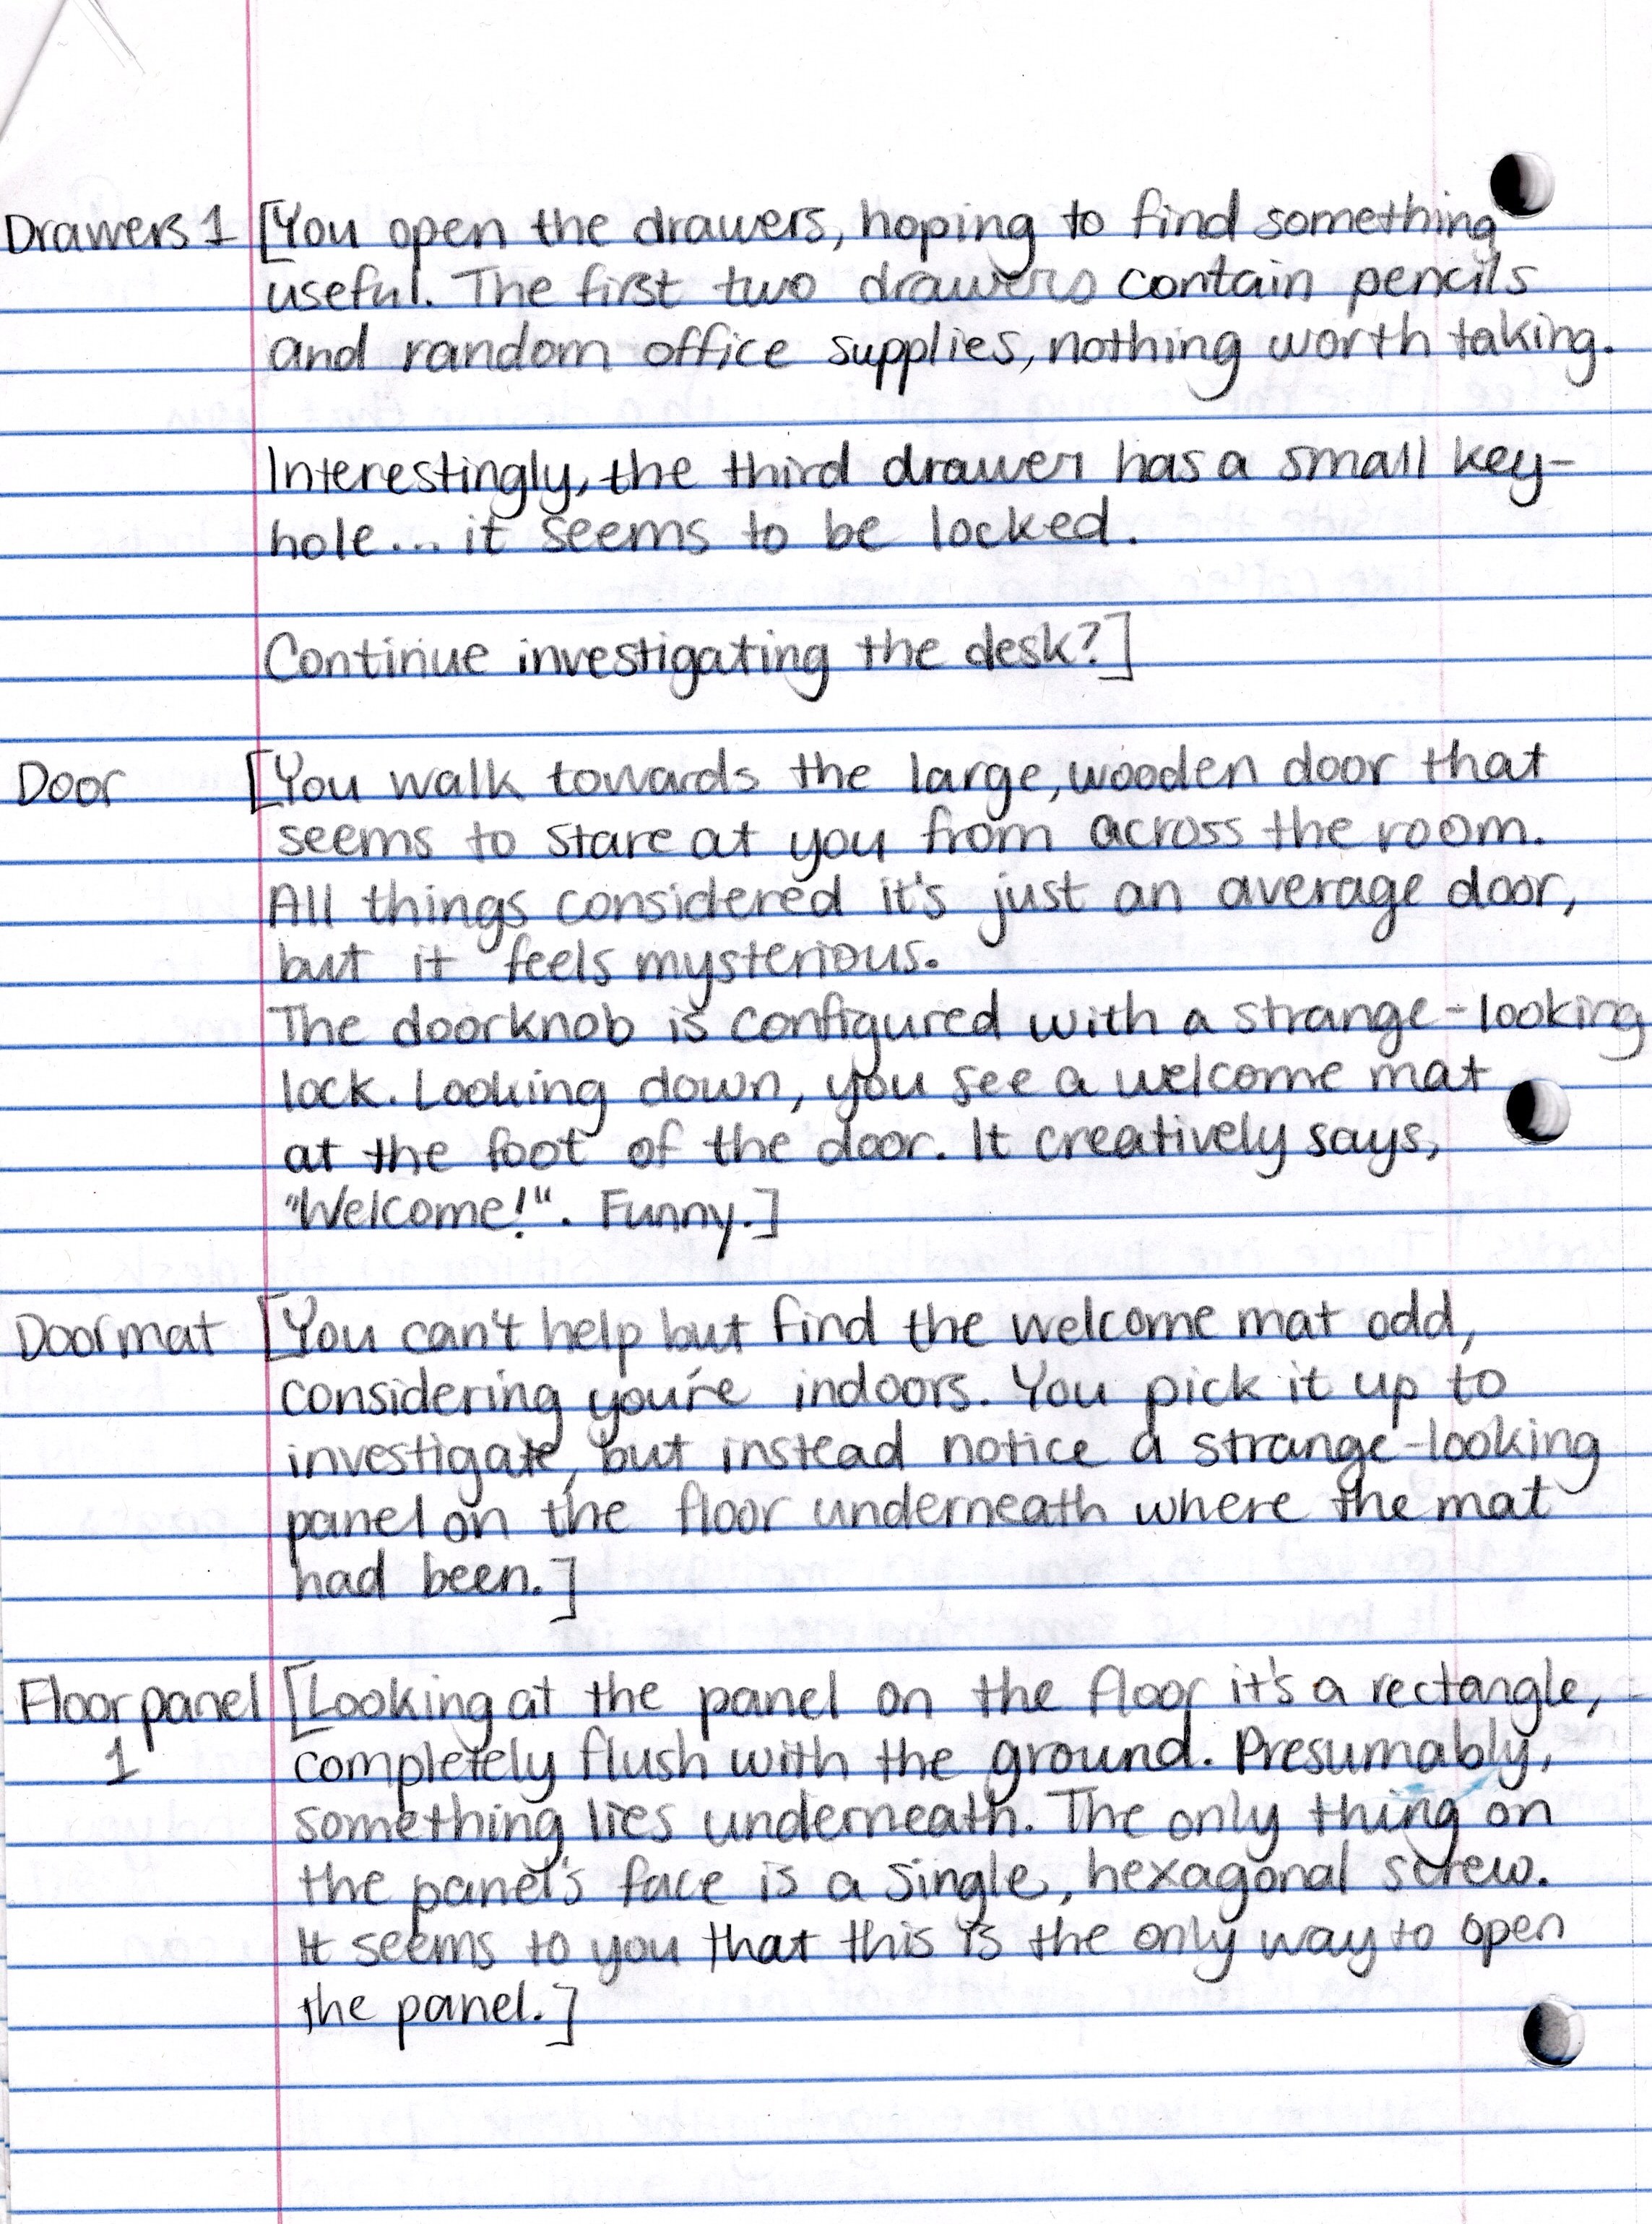 Drawers 1 [You open the drawers, hoping to find something
useful. The first two drawers contain pencils
and random office supplies, nothing worth taking.
Interestingly, the third drawer has a small key-
hole... it seems to be locked.
Continue investigating the desk?]
Door [You walk towards the large, wooden door that
seems to stare at you from across the room.
All things considered it's just an average door,
but it feels mysterious.
The doorknob is configured with a strange-looking
lock. Looking down, you see a welcome mat
at the foot of the door. It creatively says,
"Welcome!". Funny.]
Doormat [You can't help but find the welcome mat odd,
considering you're indoors. You pick it up to
investigate, but instead notice a strange-looking
panel on the floor underneath where the mat
had been.]
Floor panel [Looking at the panel on the floor it's a rectangle,
1 completely flush with the ground. Presumably,
something lies underneath. The only thing on
the panel's face is a single, hexagonal screw.
It seems to you that this is the only way to open
the panel.]